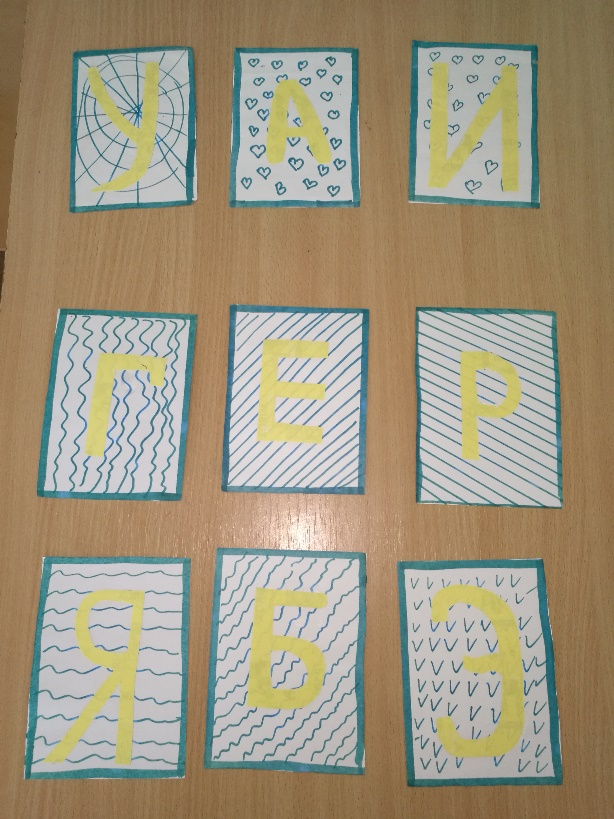 У А И
Г Е Р
Я Б Э